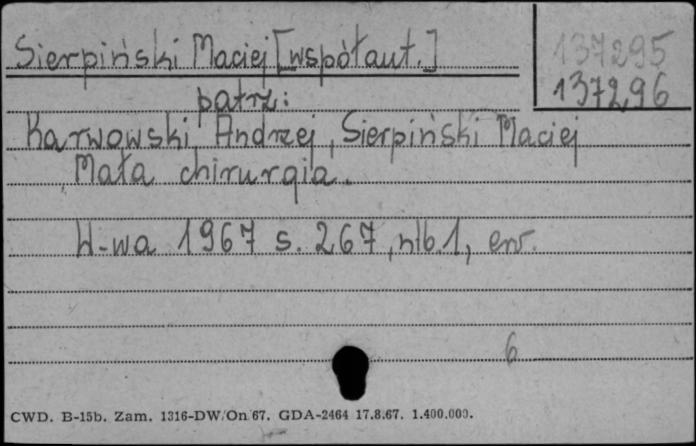 Sierpiński Maciej [współaut.]
137295
137296
patrz:
Karwowski Andrzej, Sierpiński Maciej
Mała chirurgia.
W-wa 1967 s. 267, nlb. 1, err.
6
CWD. B-15b. Zam. 1316-DW/On/67. GDA-2464 17.8.67. 1.400.000.